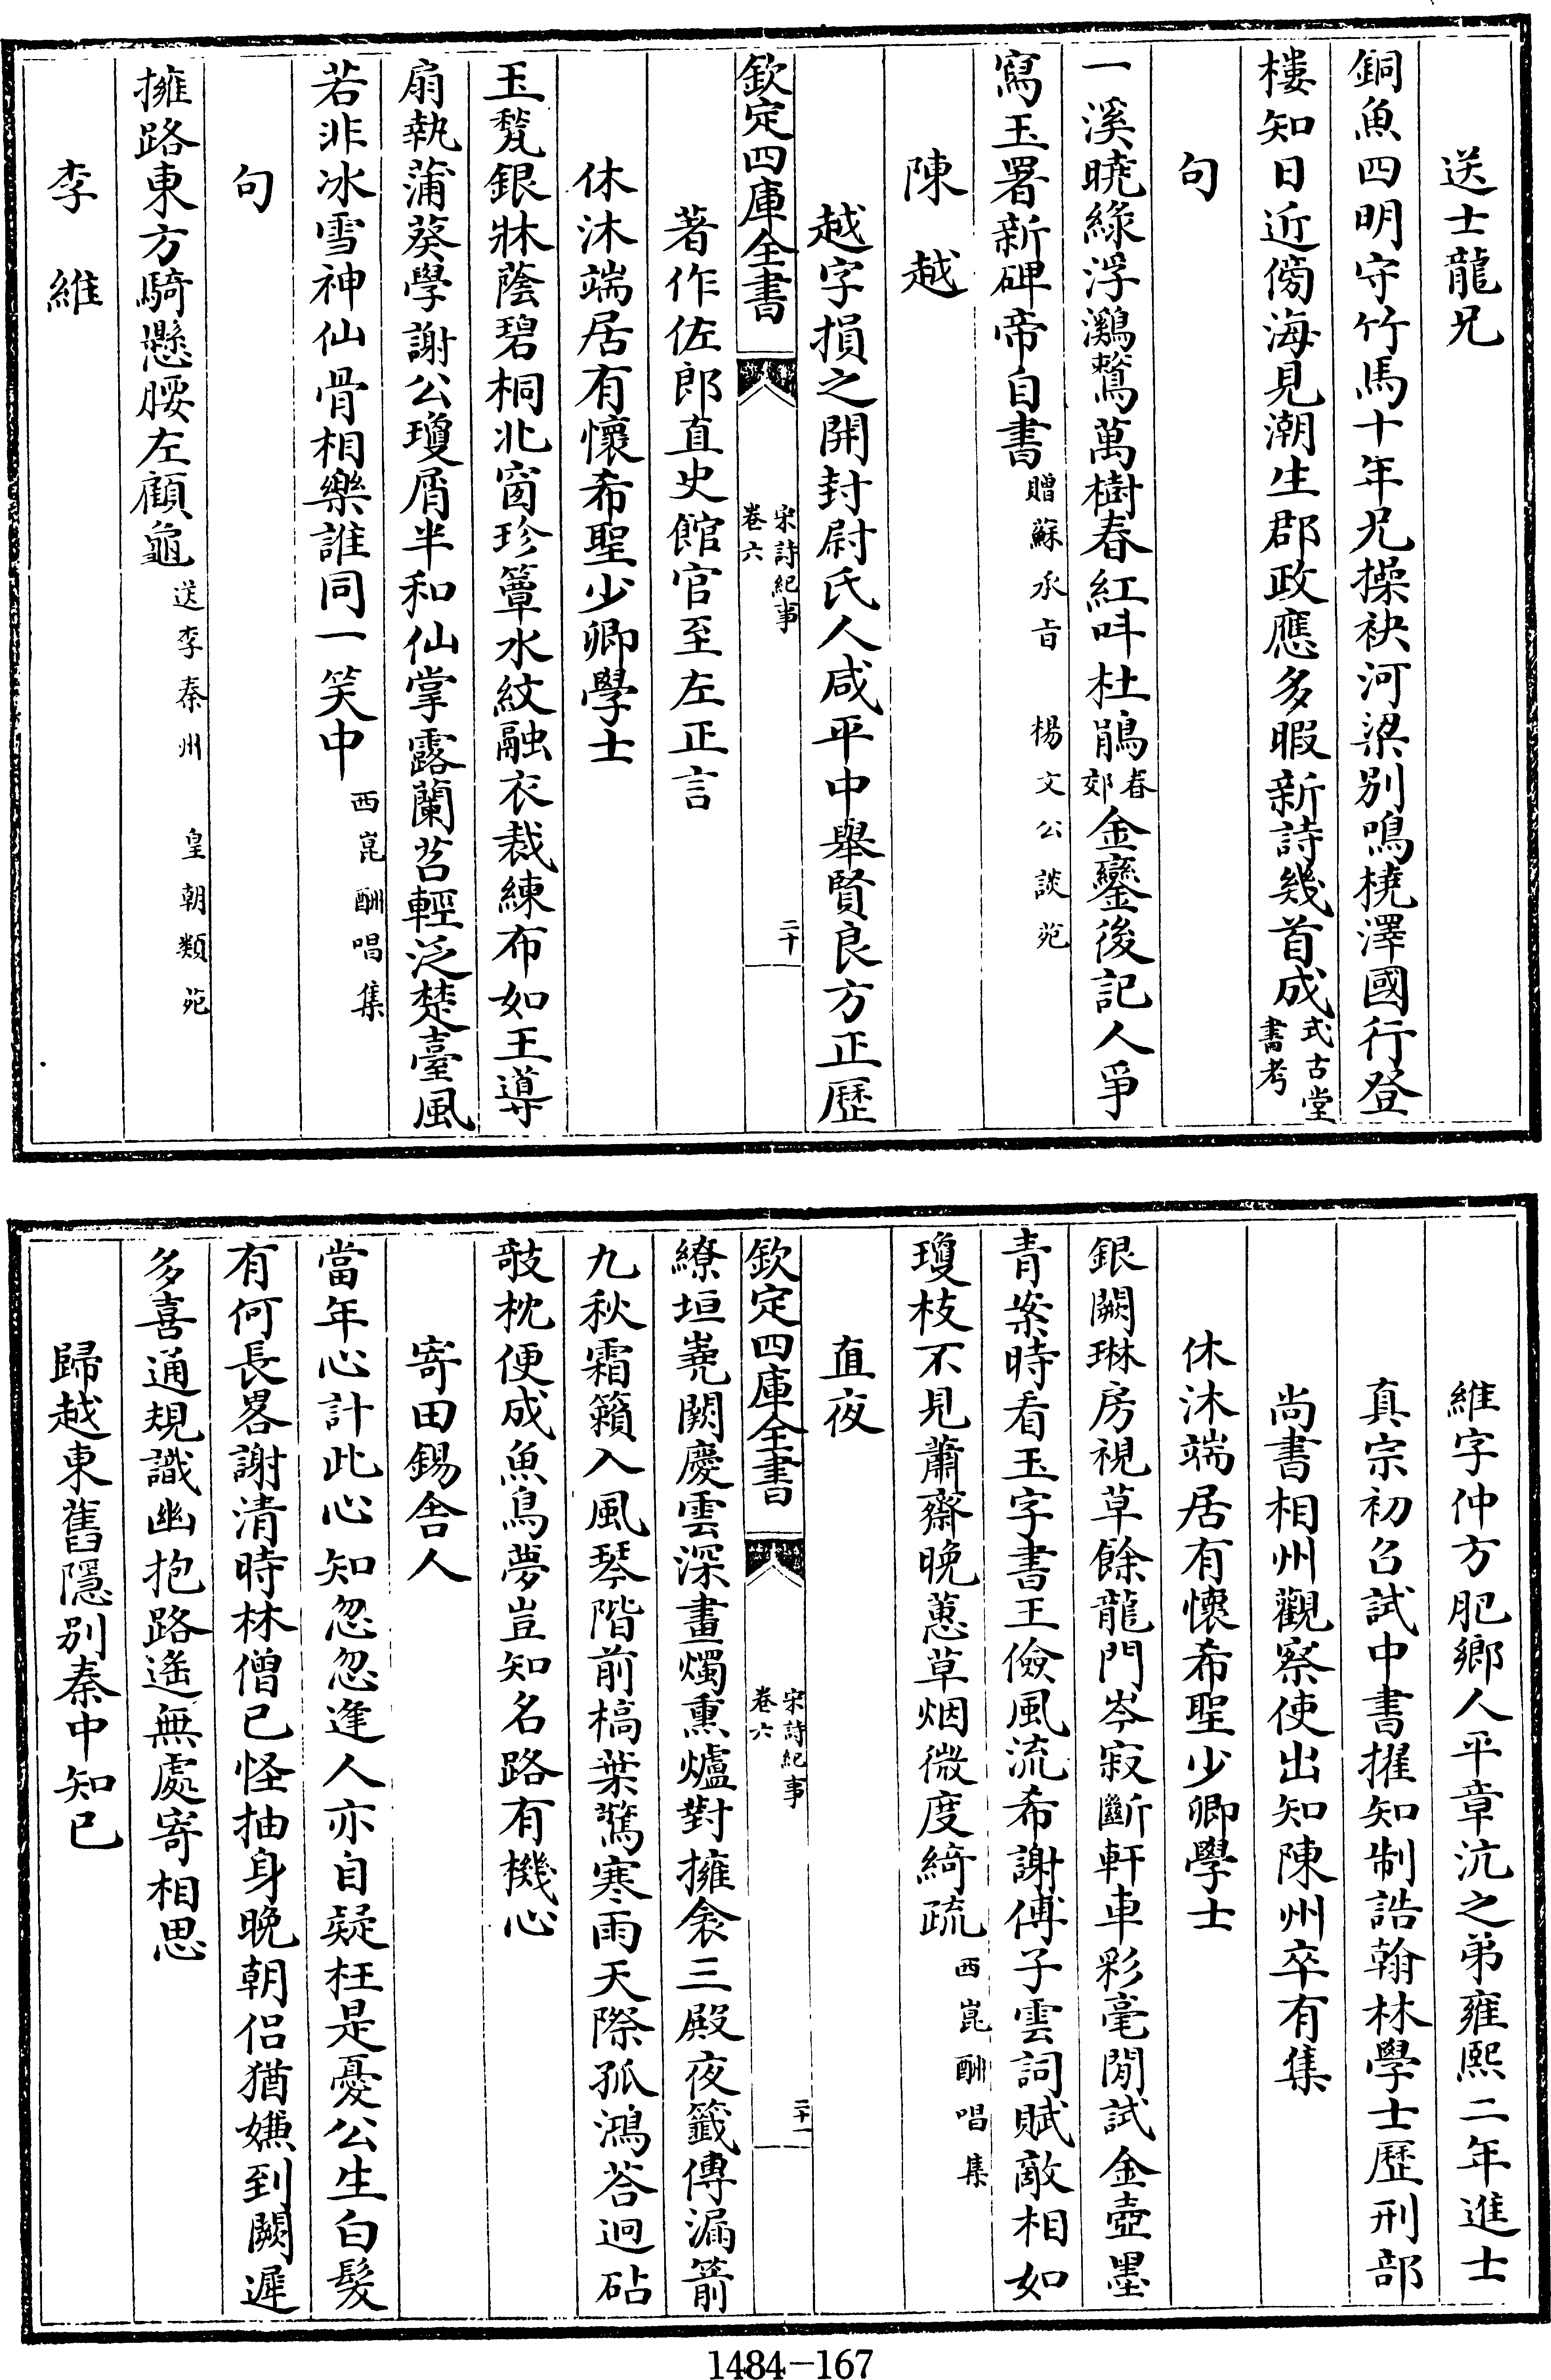 送士龍兄
銅魚四明守竹馬十年兄操袂河梁别鳴橈澤國行登
樓知日近傍海見潮生郡政應多暇新詩幾首成式古堂書考
句
一溪曉綠浮鸂鶩萬樹春紅呌杜鵑春郊金鑾後記人爭
寫玉署新碑帝自書贈蘇承㫖 楊文公談苑
陳越
越字損之開封尉氏人咸平中舉賢良方正歴
欽定四庫全書 宋詩紀事 卷六 二十
著作佐郎直史館官至左正言
休沐端居有懷希聖少卿學士
玉甃銀牀蔭碧桐北窗珍簟水紋融衣裁練布如王導
扇執蒲葵學謝公瓊屑半和仙掌露蘭苕輕泛楚臺風
若非冰雪神仙骨相樂誰同一笑中西崑酬唱集
句
擁路東方騎懸腰左顧龜送李秦州 皇朝類苑
李維
維字仲方肥鄉人平章沆之弟雍熙二年進士
真宗初召試中書擢知制誥翰林學士歴刑部
尚書相州觀察使出知陳州卒有集
休沐端居有懷希聖少卿學士
銀闕琳房視草餘龍門岑寂斷軒車彩毫閒試金壺墨
青案時看玉字書王儉風流希謝傅子雲詞賦敵相如
瓊枝不見蕭齋晚蕙草烟微度綺疏西崑酬唱集
直夜
欽定四庫全書 宋詩紀事 卷六 二十一
繚垣嶤闕慶雲深畫燭熏爐對擁衾三殿夜籤傳漏箭
九秋霜籟入風琴階前槁葉驚寒雨天際孤鴻荅迥砧
攲枕便成魚鳥夢豈知名路有機心
寄田錫舍人
當年心計此心知忽忽逢人亦自疑枉是憂公生白髮
有何長畧謝清時林僧已怪抽身晚朝侣猶嫌到闕遲
多喜通規識幽抱路遙無處寄相思
歸越東舊隱别秦中知已
1484-167